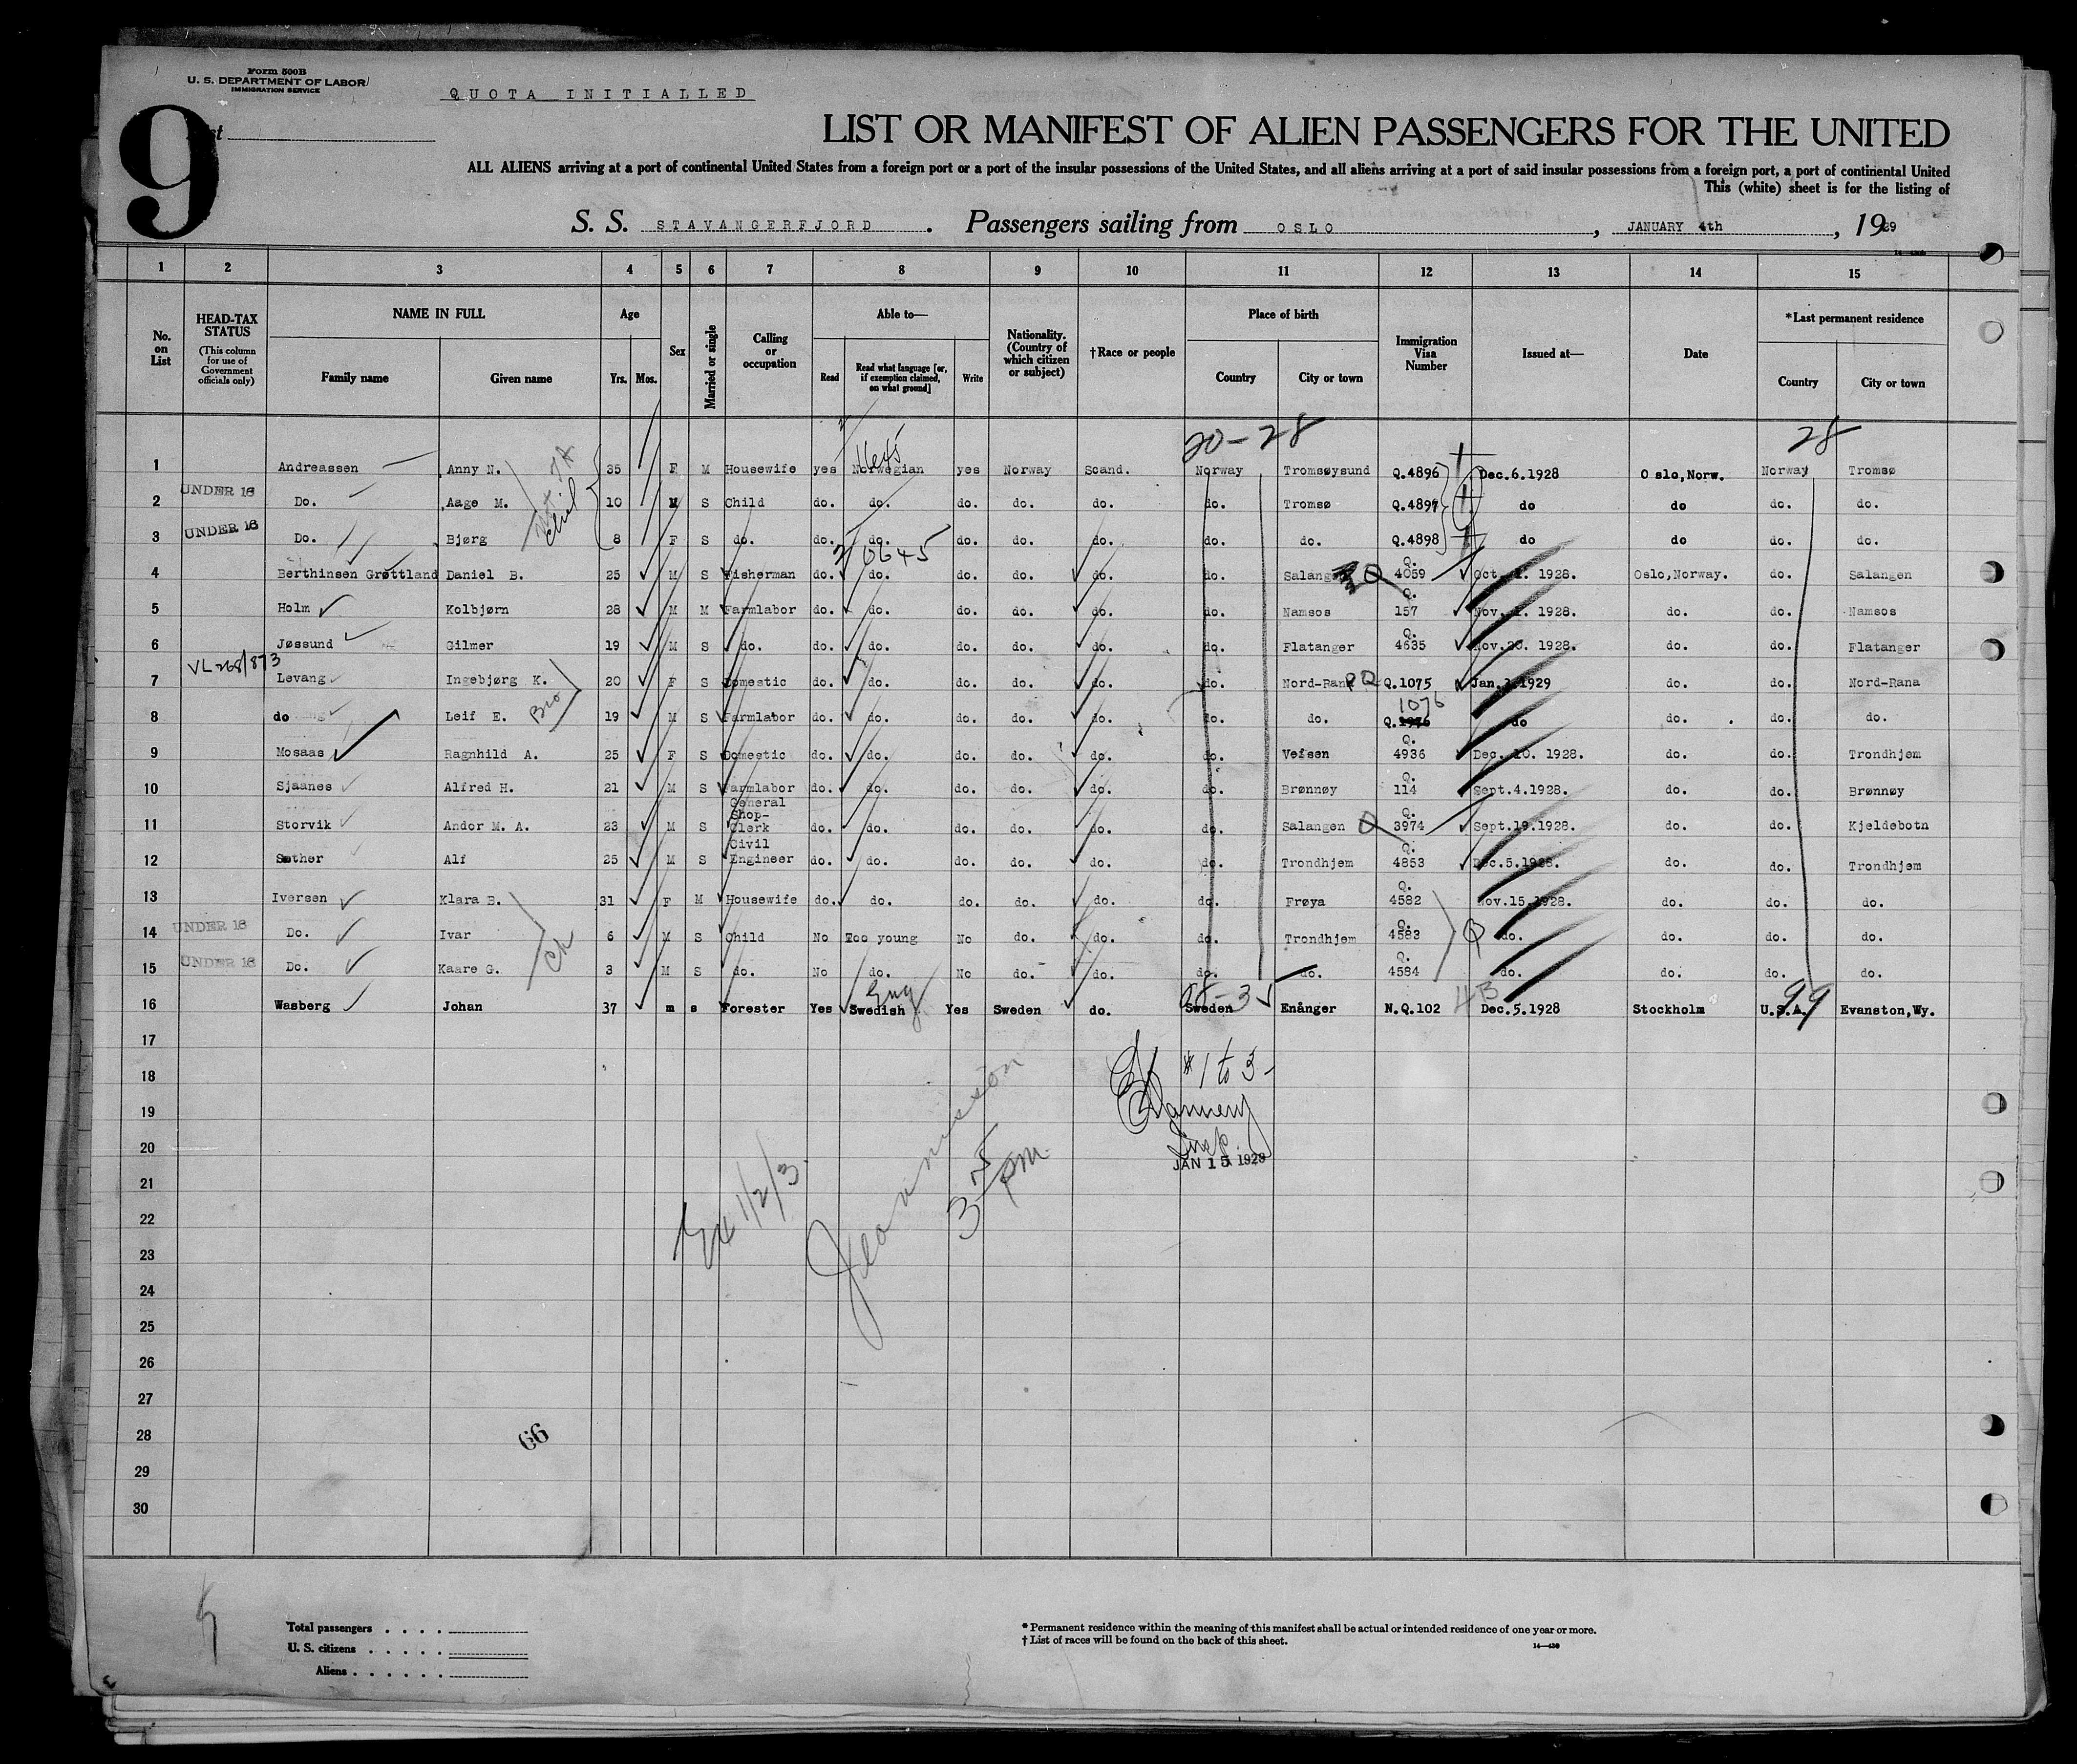 Form 500B
U. S. DEPARTMENT OF LABOR
IMMIGRATION SERVICE
QUOTA INITIALLED
9
LIST OR MANIFEST OF ALIEN PASSENGERS FOR THE UNITED
ALL ALIENS arriving at a port of continental United States from a foreign port or a port of the insular possessions of the United States, and all aliens arriving at a port of said insular possessions from a foreign port, a port of continental United
This (white) sheet is for the listing of
S. S. STAVANGERFJORD. Passengers sailing from OSLO, JANUARY 4th, 1929
1 2 3 4 5 6 7 8 9 10 11 12 13 14 15
No. on List
HEAD-TAX STATUS
(This column for use of Government officials only)
NAME IN FULL
Family name Given name
Age
Yrs. Mos.
Sex
Married or single
Calling or occupation
Able to—
Read Read what language [or, if exemption claimed, on what ground] Write
Nationality. (Country of which citizen or subject)
†Race or people
Place of birth
Country City or town
Immigration Visa Number
Issued at—
Date
*Last permanent residence
Country City or town
20-28 28
1 Andreassen Anny N. 35 F M Housewife yes Norwegian yes Norway Scand. Norway Tromsøysund Q.4896 Dec.6.1928 Oslo,Norw. Norway Tromsø
2 UNDER 16 Do. Aage M. 10 M S Child do. do. do. do. do. do. Tromsø Q.4897 do do do. do.
3 UNDER 16 Do. Bjørg 8 F S do. do. do. do. do. do. do. do. Q.4898 do do do. do.
4 Berthinsen Grøttland Daniel B. 25 M S Fisherman do. do. do. do. do. do. Salangen Q. 4059 Oct. 1. 1928. Oslo,Norway. do. Salangen
5 Holm Kolbjørn 28 M M Farmlabor do. do. do. do. do. do. Namsos Q. 157 Nov. 1. 1928. do. do. Namsos
6 Jøssund Gilmer 19 M S do. do. do. do. do. do. do. Flatanger Q. 4635 Nov.20. 1928. do. do. Flatanger
VL 268/873
7 Levang Ingebjørg K. 20 F S Domestic do. do. do. do. do. do. Nord-Rana Q.1075 Jan. 1929 do. do. Nord-Rana
8 do Leif E. Bro 19 M S Farmlabor do. do. do. do. do. do. do. Q. 1076 do do. do. do.
9 Mosaas Ragnhild A. 25 F S Domestic do. do. do. do. do. do. Vefsen Q. 4936 Dec. 10. 1928. do. do. Trondhjem
10 Sjaanes Alfred H. 21 M S Farmlabor do. do. do. do. do. do. Brønnøy Q. 114 Sept.4.1928. do. do. Brønnøy
11 Storvik Andor M. A. 23 M S General Shop-Clerk do. do. do. do. do. do. Salangen Q. 3974 Sept.19.1928. do. do. Kjeldebotn
12 Sæther Alf 25 M S Civil Engineer do. do. do. do. do. do. Trondhjem Q. 4853 Dec.5.1928. do. do. Trondhjem
13 Iversen Klara B. 31 F M Housewife do. do. do. do. do. do. Frøya Q. 4582 Nov.15.1928. do. do. do.
14 UNDER 16 Do. Ivar 6 M S Child No Too young No do. do. do. Trondhjem Q. 4583 do. do. do. do.
15 UNDER 16 Do. Kaare G. Ch 3 M S do. No do. No do. do. do. do. Q. 4584 do. do. do. do.
Eng 98-3 4B 99
16 Wasberg Johan 37 m s Forester Yes Swedish Yes Sweden do. Sweden Enånger N.Q.102 Dec.5.1928 Stockholm U.S.A. Evanston,Wy.
17
18 #1 to 3-
19
20 Insp.
JAN 15 1929
21
22
23
24
25
26
27
28
29
30
3 pm
66
Total passengers
U. S. citizens
Aliens
*Permanent residence within the meaning of this manifest shall be actual or intended residence of one year or more.
†List of races will be found on the back of this sheet.